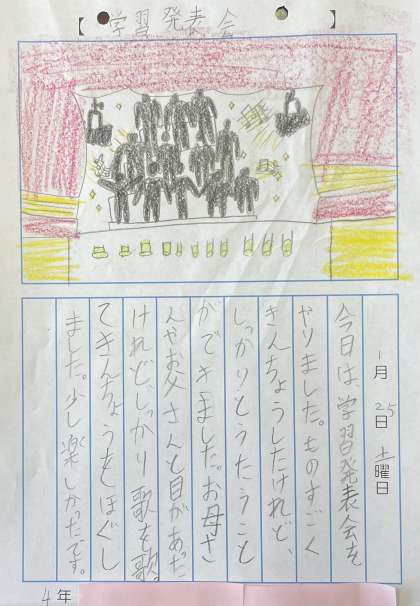 【学習発表会】
1月25日土曜日
今日は、学習発表会を
やりました。ものすごく
きんちょうしたけれど、
しっかりとうたうこと
ができました。お母さ
んやお父さんと目があった
けれど、しっかり歌を歌っ
てきんちょうをほぐし
ました。少し楽しかったです。
4年